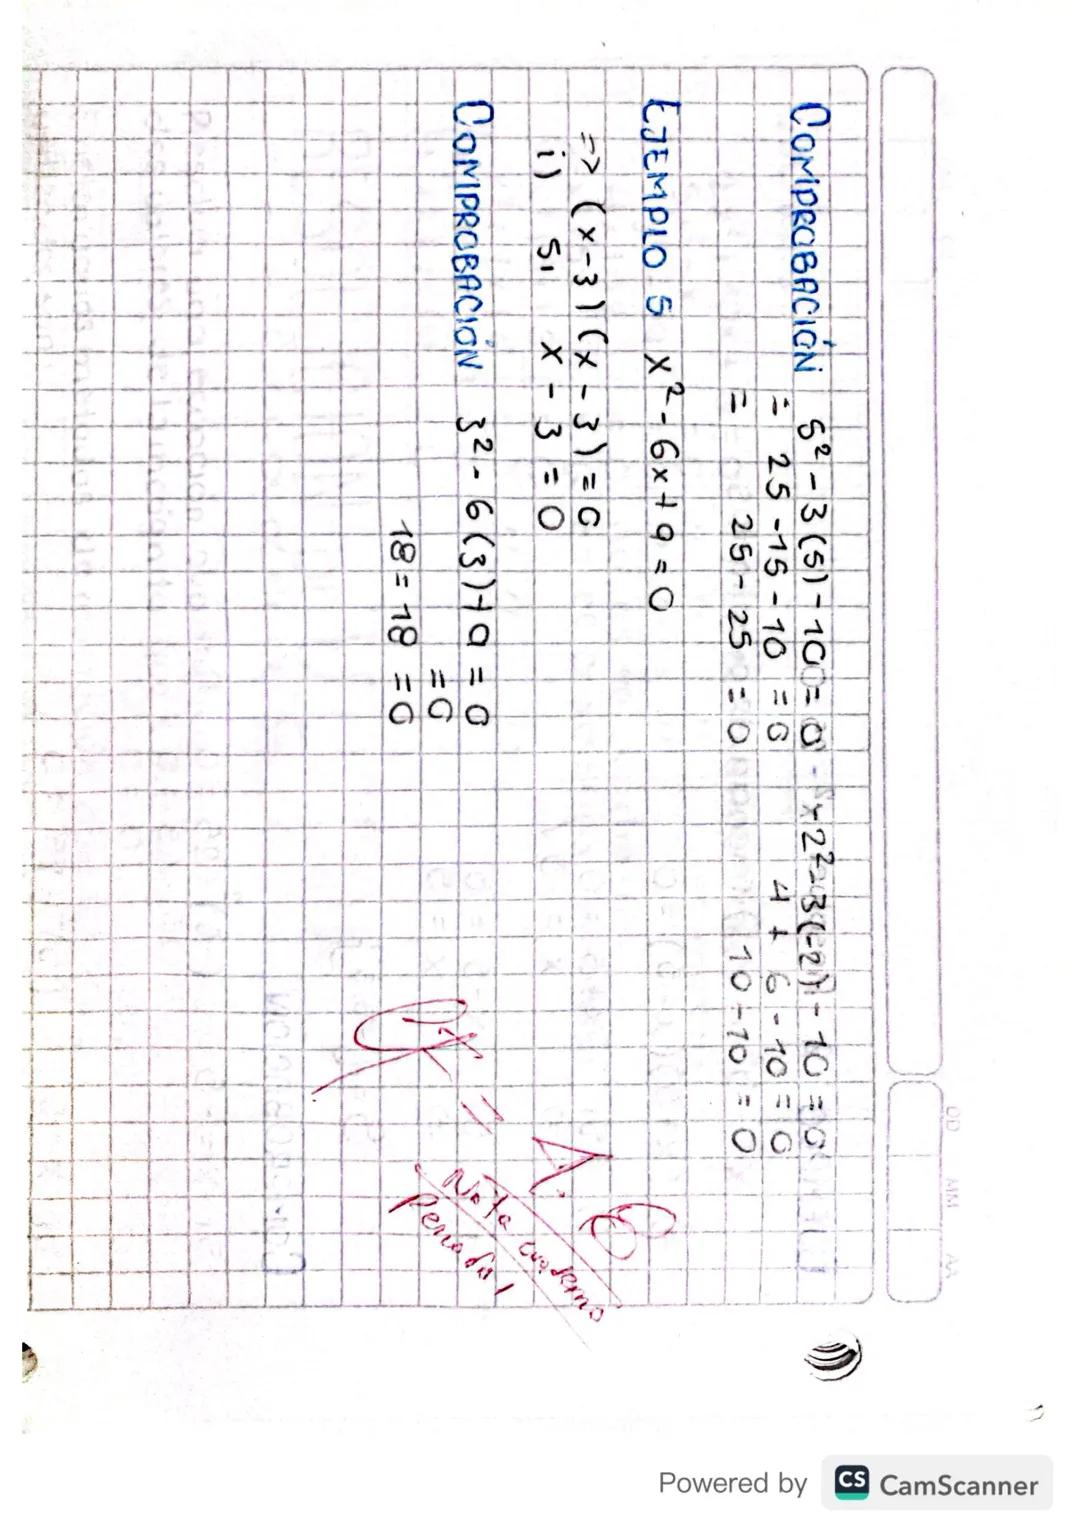 DD MM AA
COMPROBACIÓN 5² - 3(5) - 10 = 0 2² - 3(-2) - 10 = 0
= 25 - 15 - 10 = 0 4 + 6 - 10 = 0
= 25 - 25 = 0 10 - 10 = 0
EJEMPLO 5 x² - 6x + 9 = 0
=> (x - 3) (x - 3) = 0
i) si x - 3 = 0
COMPROBACIÓN 3² - 6(3) + 9 = 0
= 0
18 = 18 = 0
Ok = 4.8
Nota cuaderno
Periodo 1
Powered by CS CamScanner